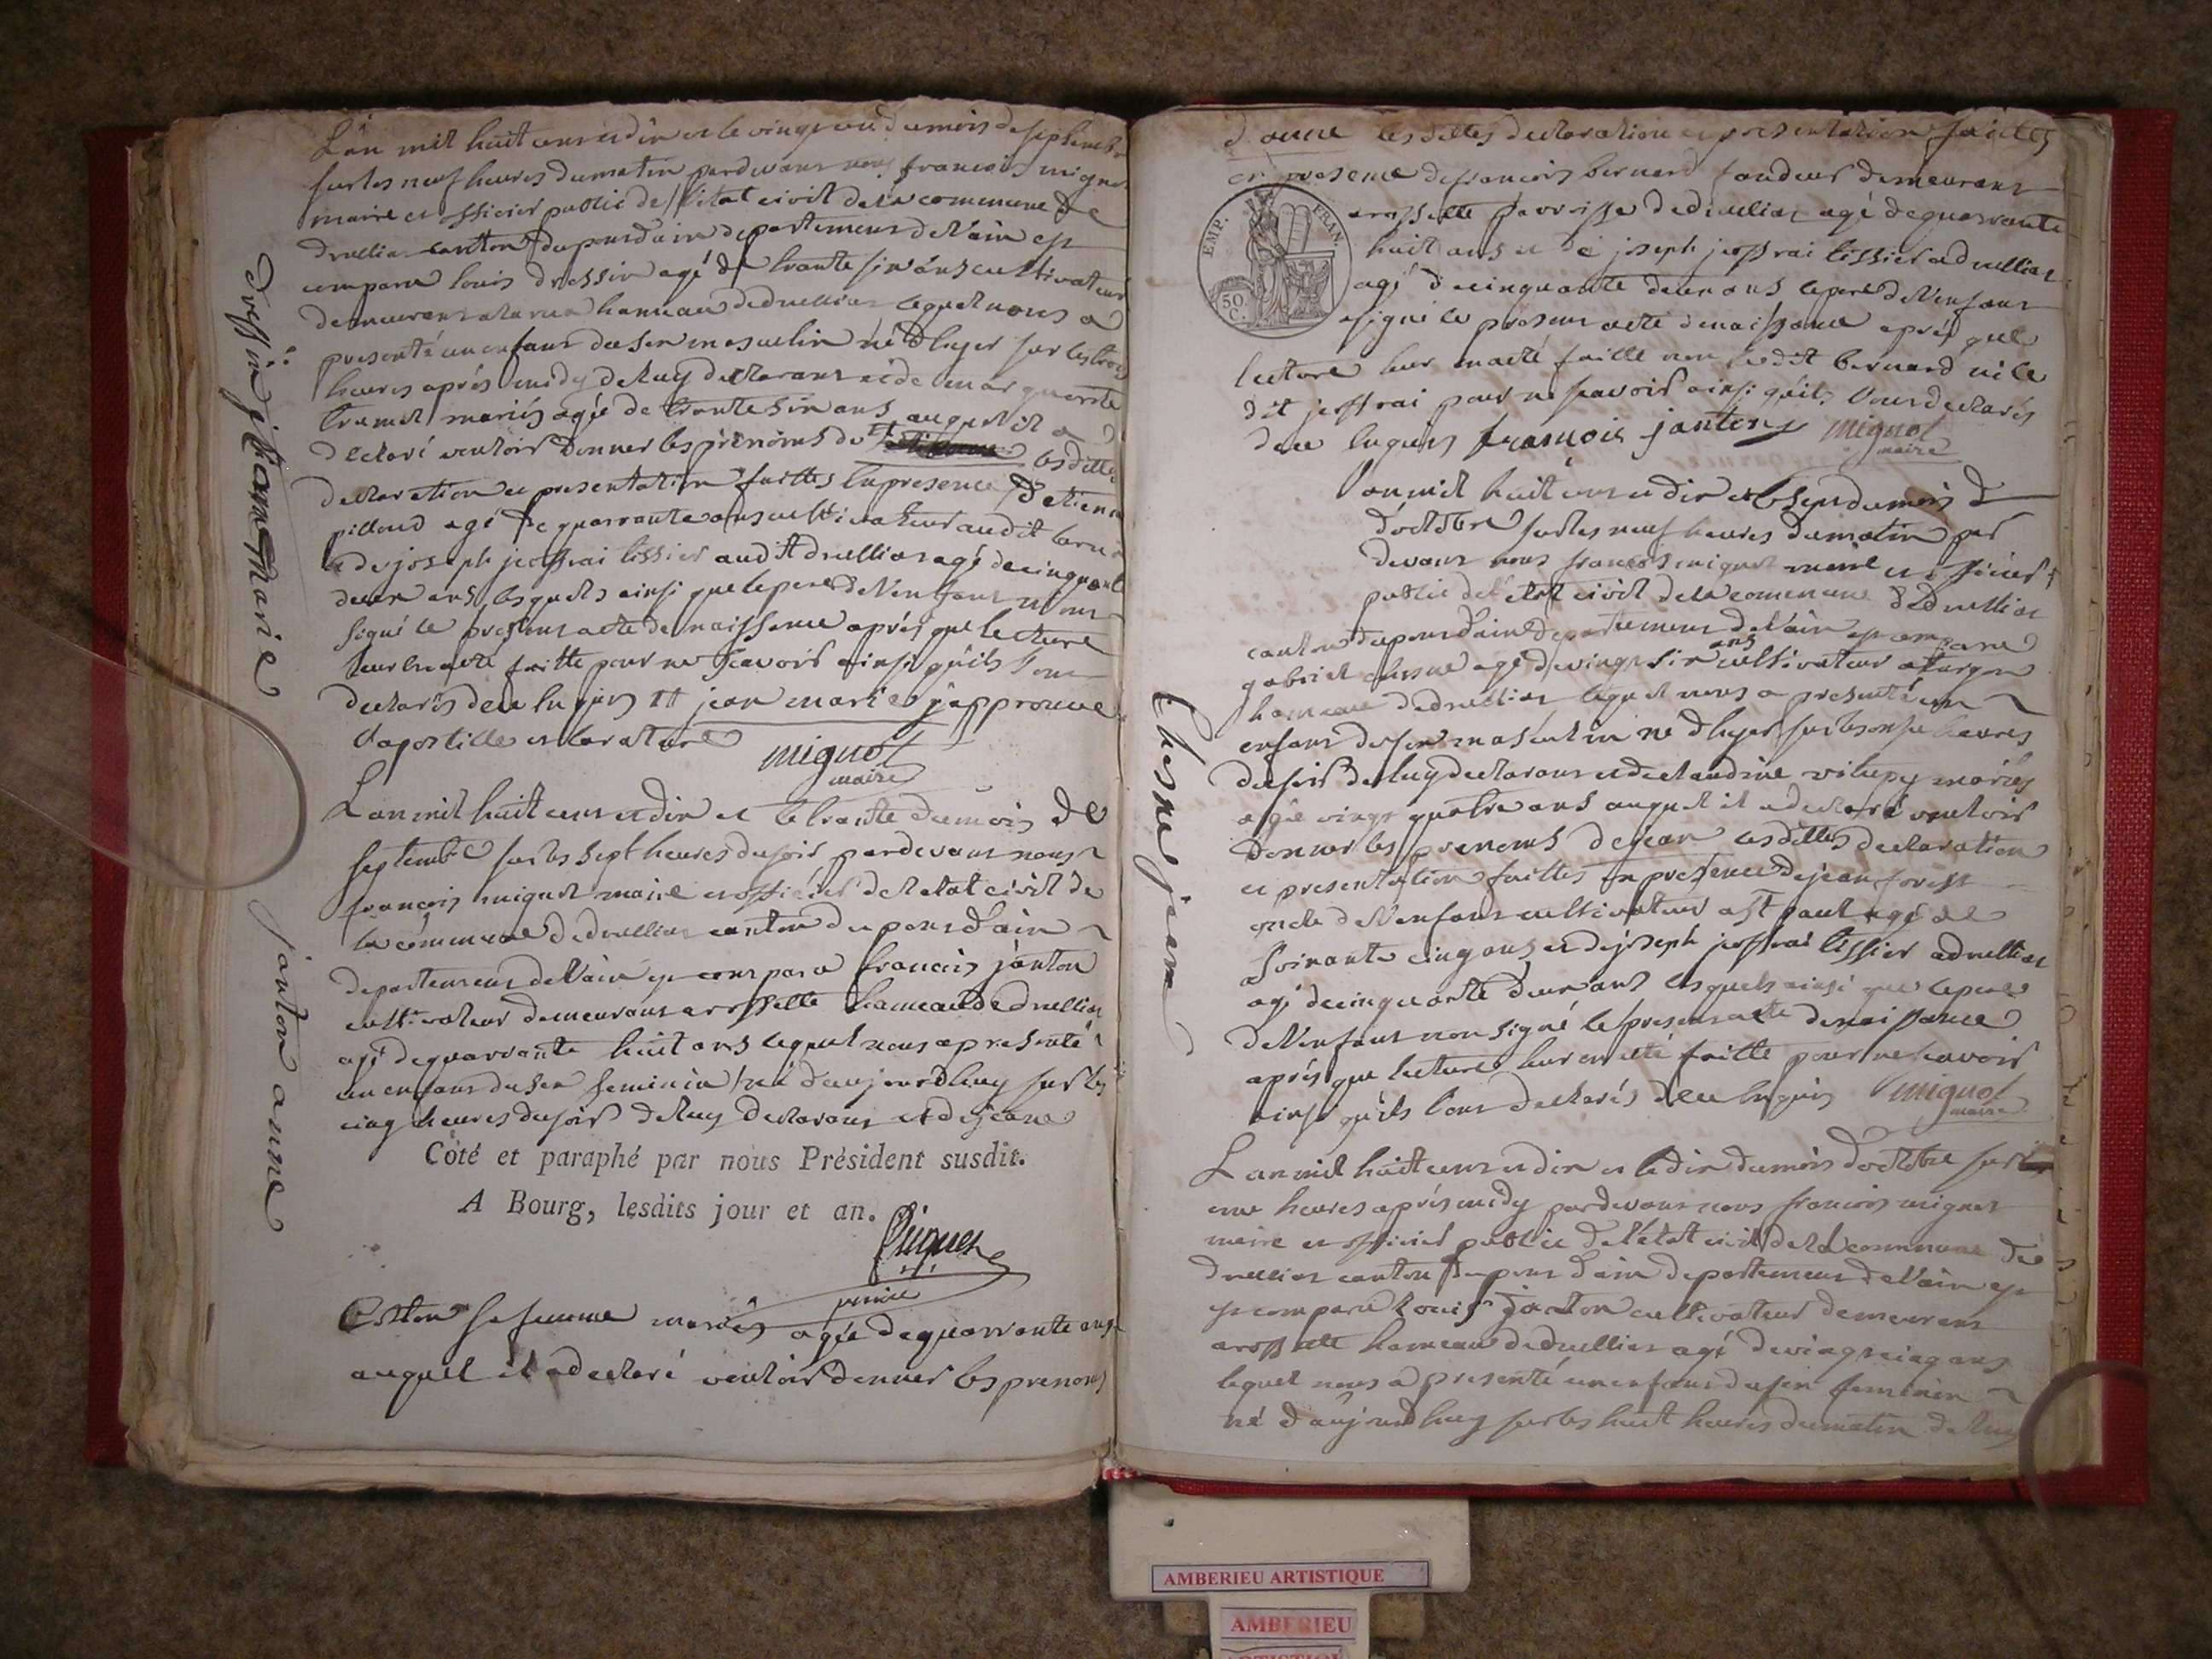 L'an mil huit cent et dix et le vingt un du mois de septembre
sur les neuf heures du matin pardevant nous françois mignot
maire et officier public de l'état civil de la commune de
drullia canton du pont d'ain departement de l'ain est
comparu louis dressin agé de trante six ans cultivateur
demeurant hameau de druillia lequel nous a
presenté un enfant du sex masculin né d'hyer sur les trois
heures après midy de luy declarant et de marguerite
mariés agée de trante six ans auquel il a
declaré vouloir donner les prenoms de lesdittes
declaration et presentation faittes en presence d'etienne
pilloud agé de quarrante ans cultivateur audit
et de joseph jeoffrai tissier audit druillia agé de cinquante
deux ans lesquels ainsi que le pere de l'enfant n'ont
signé le present acte de naissance après que lecture
leur en a été faitte pour ne scavoir ainsi qu'ils l'ont
declarés de ce enquis jean marie j'approuve
l'apostille et la rature
mignot
maire
dressin jean marie
L'an mil huit cent et dix et le trante du mois de
septembre sur les sept heures du soir pardevant nous
françois mignot maire et officier de l'etat civil de
la commune de druillia canton du pont d'ain
departement de l'ain est comparu francois janton
cultivateur demeurant a rossette hameau de druillia
agé de quarrante huit ans lequel nous a presenté
un enfant du sex feminin né d'aujourd'huy sur les
cinq heures du soir de luy declarant et de jeane
janton anne
Coté et paraphé par nous Président susdit.
A Bourg, lesdits jour et an.
sa femme mariés agée de quarrante ans
auquel il a declaré vouloir donner les prenoms
d'anne les dittes declaration et presentation faittes
en presence de francois bernard demeurant
a rossette parroisse de druillia agé de quarrante
huit ans et de joseph jeoffrai tissier a druillia
agé de cinquante deux ans le pere de l'enfant
a signé le present acte de naissance après que
lecture leur en a été faitte non ledit bernard ni le
dit jeoffrai pour ne scavoir ainsi qu'ils l'ont declarés
de ce enquis francois janton mignot
maire
EMP. FRAN.
50 C.
L'an mil huit cent et dix et le sept du mois
d'octobre sur les neuf heures du matin par
devant nous françois mignot maire et officier
public de l'état civil de la commune de druillia
canton du pont d'ain departement de l'ain est comparu
gabriel chesne agé de vingt six ans cultivateur a turgon
hameau de druillia lequel nous a presenté un
enfant du sex masculin né d'hyer sur les onze heures
du soir de luy declarant et de claudine mariés
agée vingt quatre ans auquel il a declaré vouloir
donner les prenoms de jean lesdittes declaration
et presentation faittes en presence de jean forest
oncle de l'enfant cultivateur a st paul agé de
soixante cinq ans et de joseph jeoffrai tissier a druillia
agé de cinquante deux ans lesquels ainsi que le pere
de l'enfant n'on signé le present acte de naissance
après que lecture leur en a été faitte pour ne scavoir
ainsi qu'ils l'ont declarés de ce enquis mignot
maire
Chesne jean
L'an mil huit cent et dix et le dix du mois d'octobre sur
une heures après midy pardevant nous françois mignot
maire et officier public de l'état civil de la commune de
druillia canton du pont d'ain departement de l'ain est
est comparu Louis janton cultivateur demeurant
a rossette hameau de druillia agé de vingt cinq ans
lequel nous a presenté un enfant du sex feminin
né d'aujourd'huy sur les huit heures du matin de luy
AMBERIEU ARTISTIQUE
AMBERIEU
ARTISTIQUE